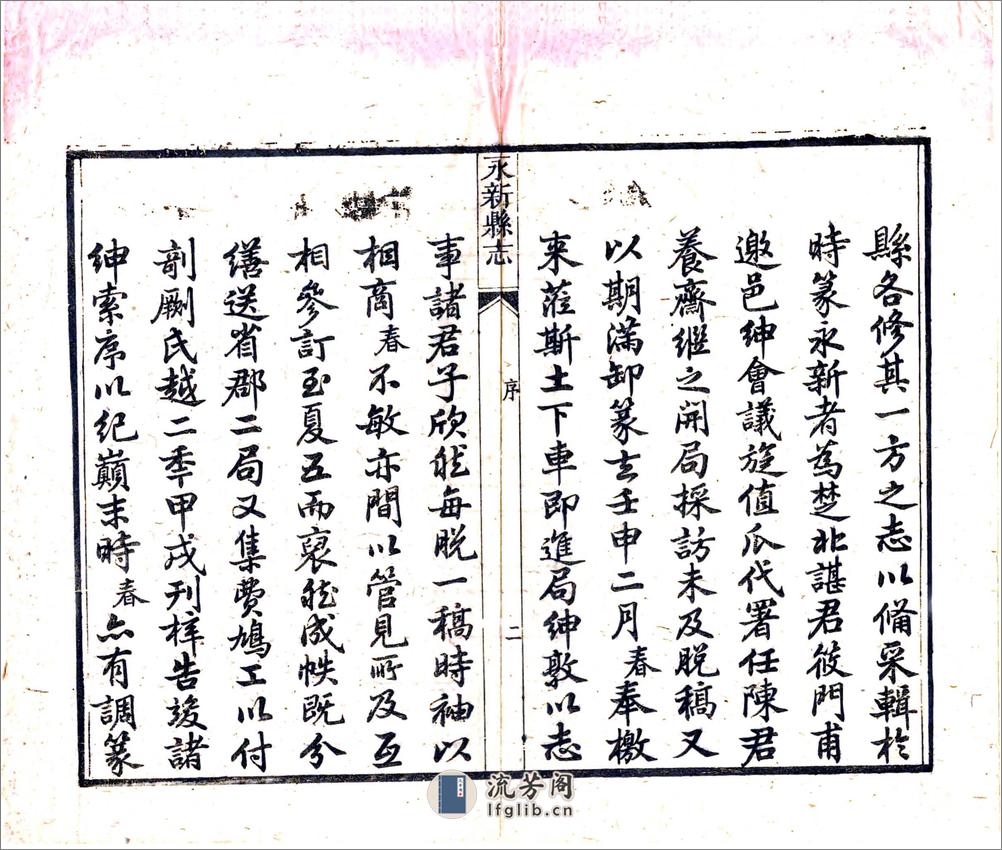 縣各修其一方之志以備采輯於
時篆永新者為楚北諶君筱門甫
邀邑紳會議旋值瓜代署任陳君
養齋繼之開局採訪未及脫稿又
以期滿卸篆去壬申二月春奉檄
來蒞斯土下車即進局紳敦以志
永新縣志
序
二
事諸君子欣然每脫一稿時袖以
相商春不敏亦間以管見所及互
相參訂至夏五而裒然成帙既分
繕送省郡二局又集費鳩工以付
剞劂氏越二季甲戌刊梓告竣諸
紳索序以紀巔末時春亦有調篆
流芳阁
lfglib.cn